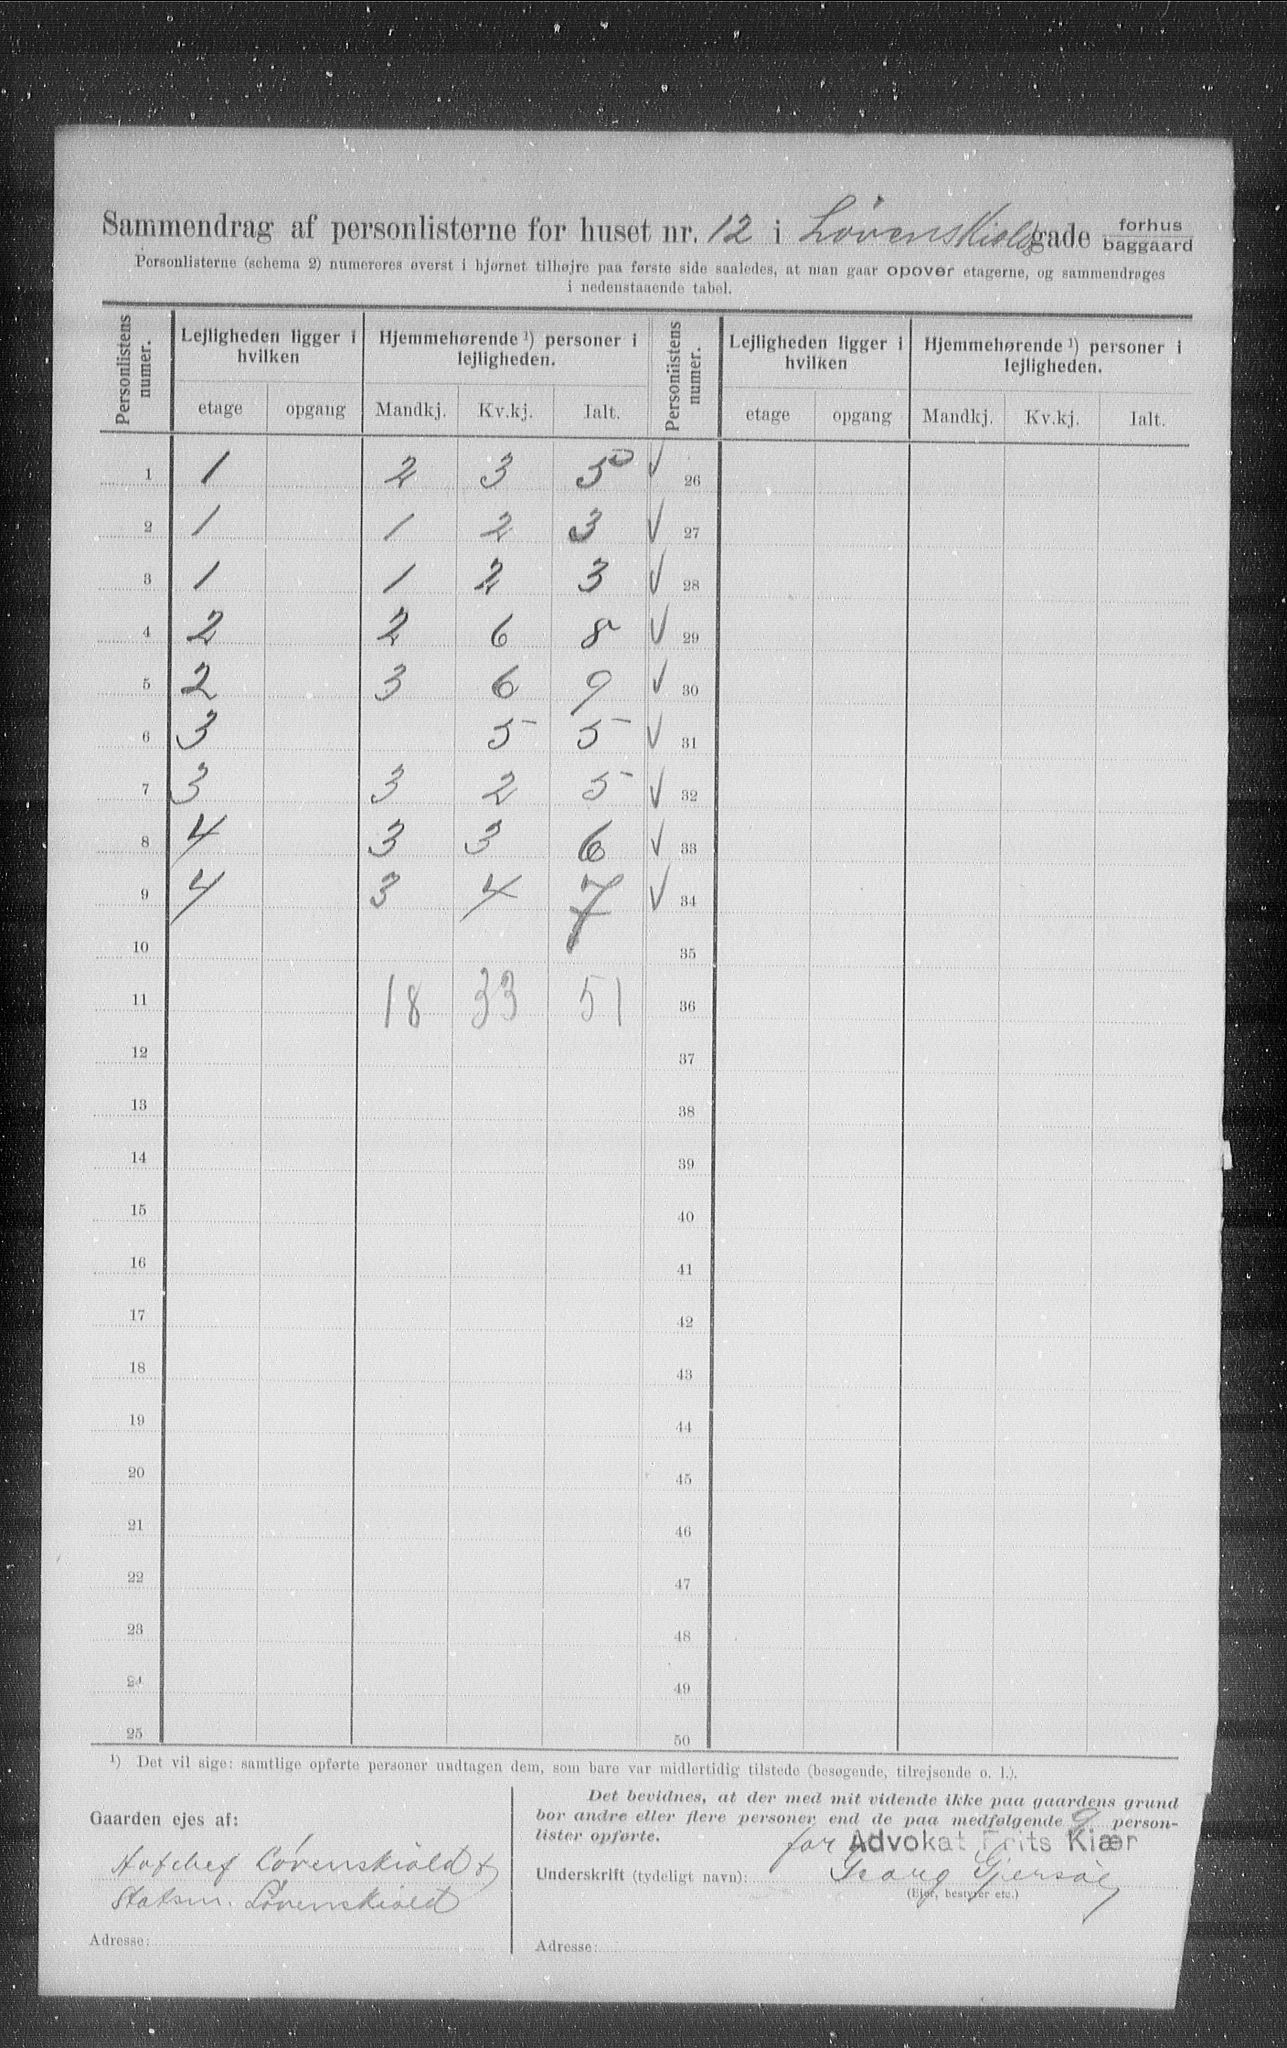 Sammendrag af personlisterne for huset nr. 12 i Løvenskioldsgade forhus baggaard
Personlisterne (schema 2) numereres øverst i hjørnet tilhøjre paa første side saaledes, at man gaar opover etagerne, og sammendrages
i nedenstaaende tabel.
Personlistens numer. Lejligheden ligger i hvilken Hjemmehørende ¹) personer i lejligheden. Personlistens numer. Lejligheden ligger i hvilken Hjemmehørende ¹) personer i lejligheden.
etage opgang Mandkj. Kv.kj. Ialt. etage opgang Mandkj. Kv.kj. Ialt.
1 1 2 3 5 √ 26
2 1 1 2 3 √ 27
3 1 1 2 3 √ 28
4 2 2 6 8 √ 29
5 2 3 6 9 √ 30
6 3 5 5 √ 31
7 3 3 2 5 √ 32
8 4 3 3 6 √ 33
9 4 3 4 7 √ 34
10 35
11 18 33 51 36
12 37
13 38
14 39
15 40
16 41
17 42
18 43
19 44
20 45
21 46
22 47
23 48
24 49
25 50
¹) Det vil sige: samtlige opførte personer undtagen dem, som bare var midlertidig tilstede (besøgende, tilrejsende o. l.).
Gaarden ejes af:
Hofchef Løvenskiold &
Statsm. Løvenskiold
Adresse:
Det bevidnes, at der med mit vidende ikke paa gaardens grund
bor andre eller flere personer end de paa medfølgende 9 person-
lister opførte.
for Advokat Frits Kiær
Underskrift (tydeligt navn): Georg Gjersøe
(Ejer, bestyrer etc.)
Adresse: